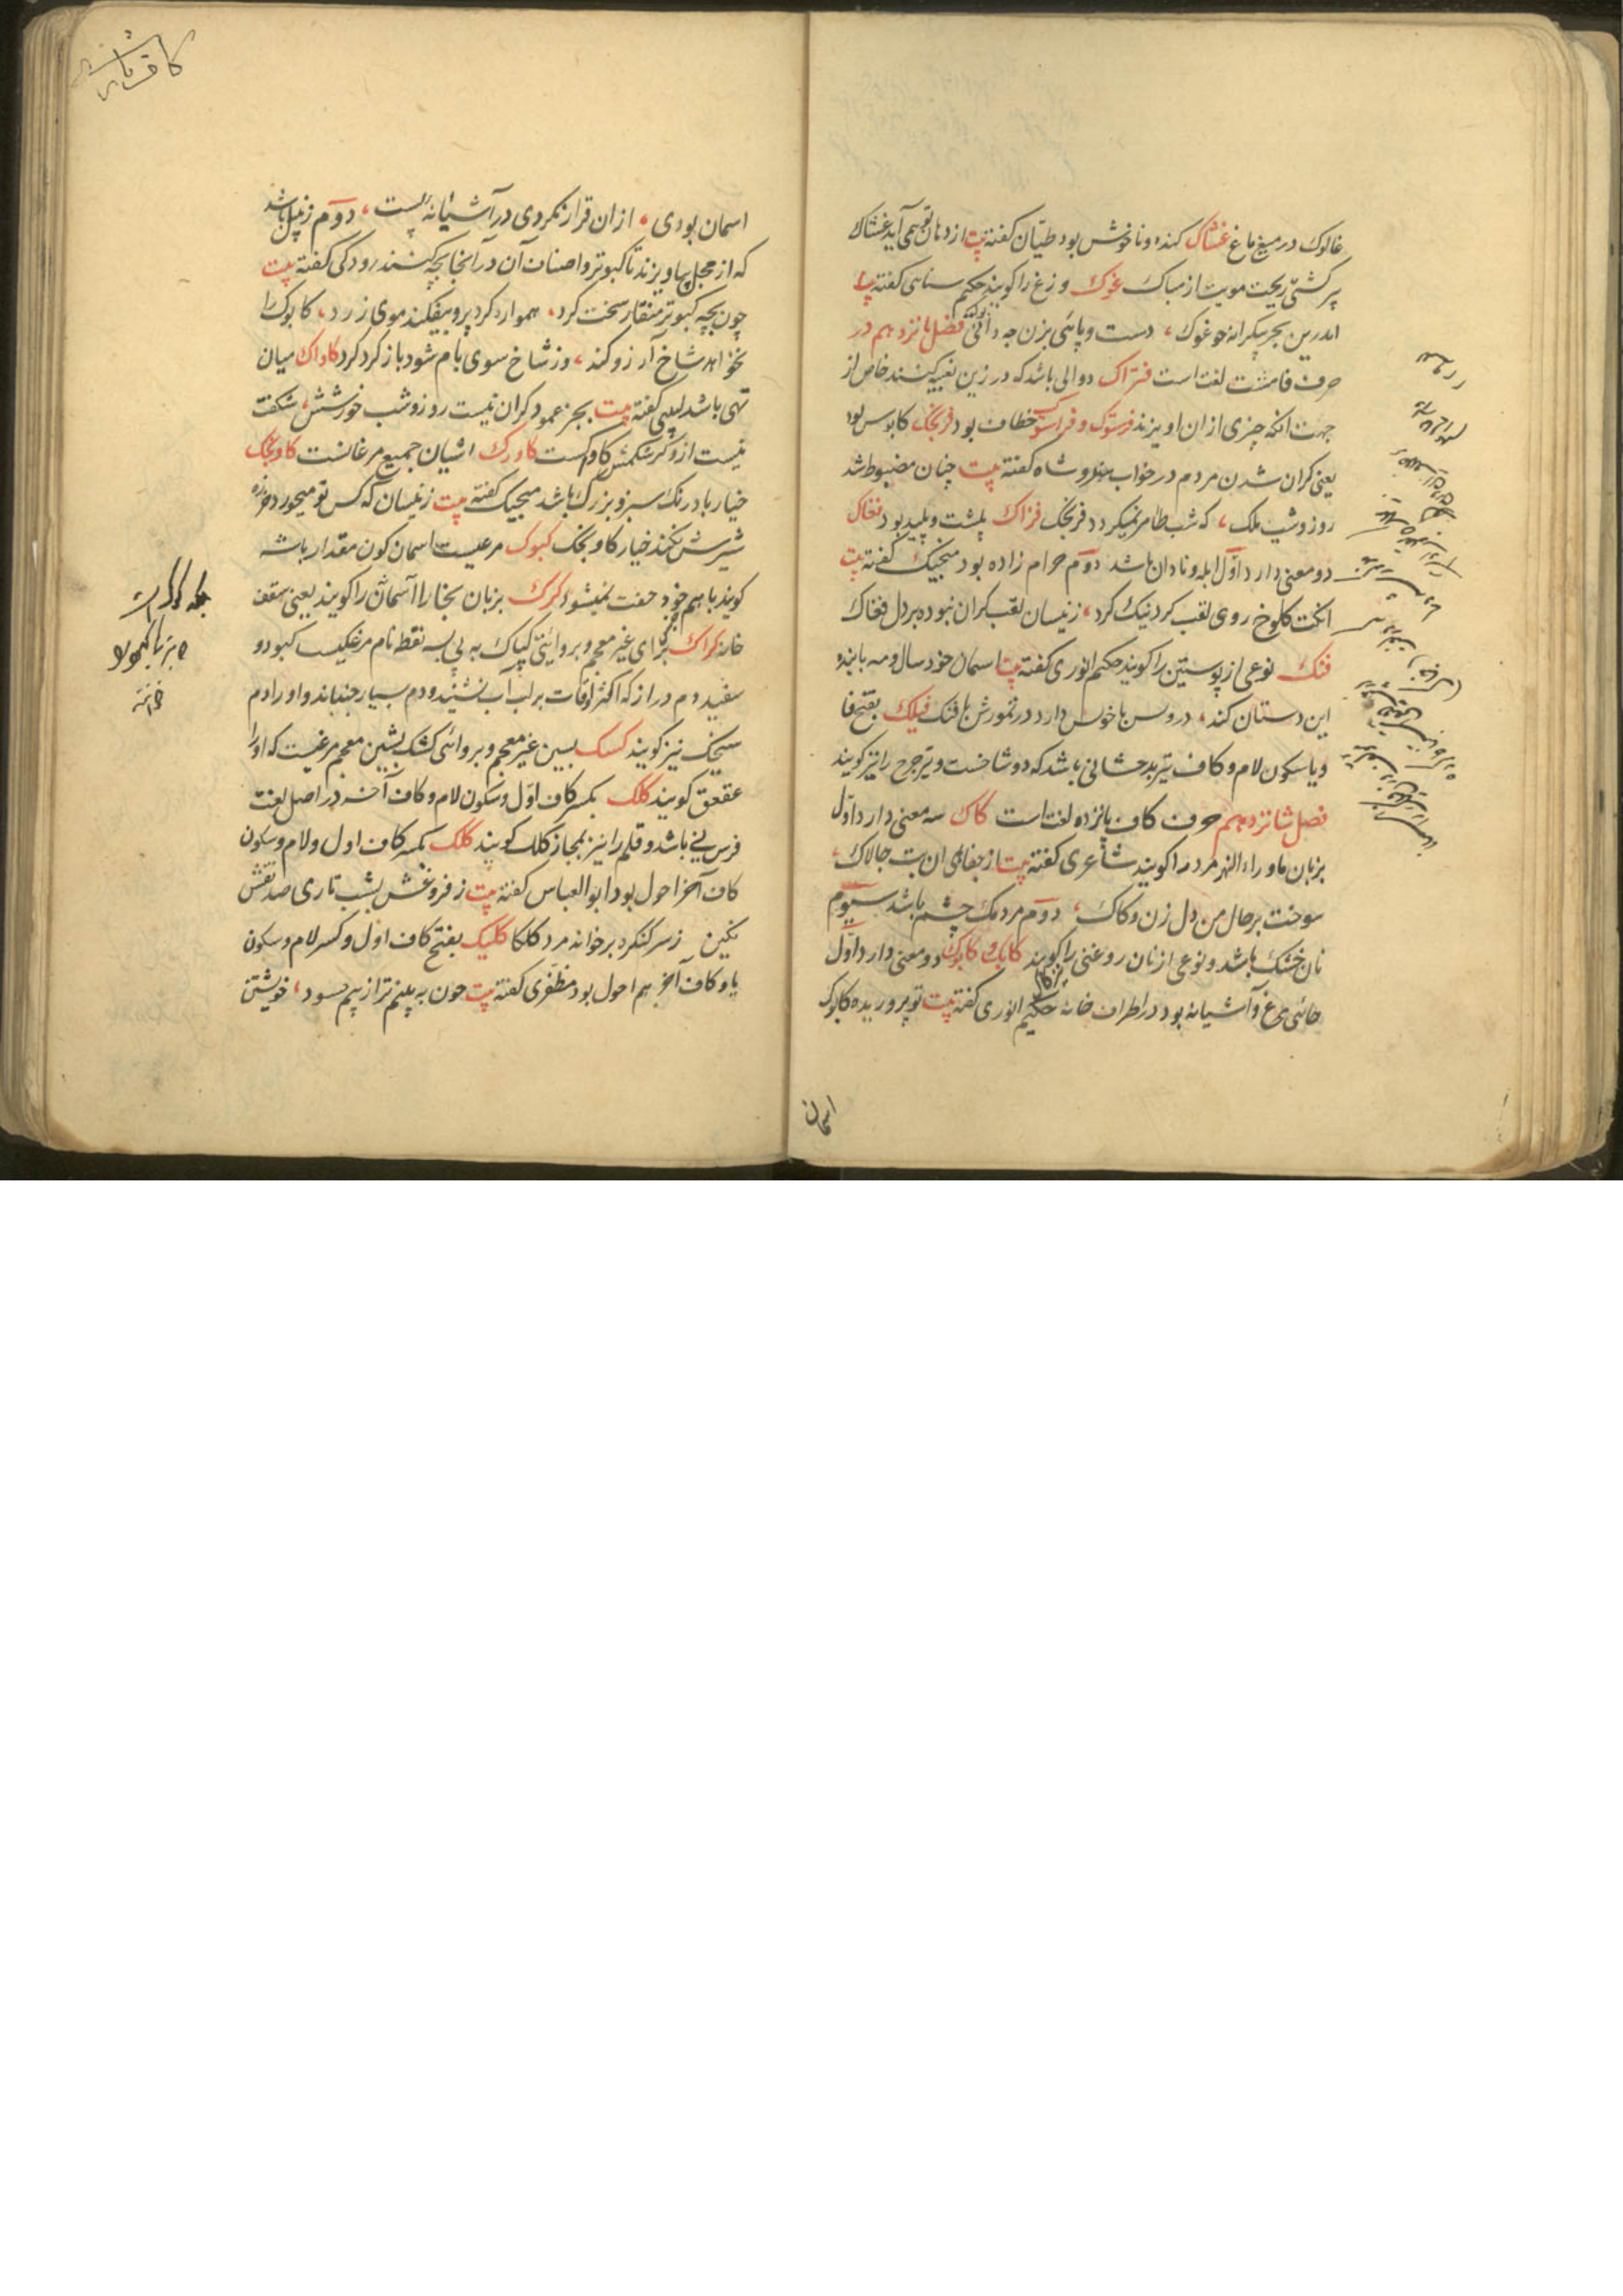 غالوک در میغ ماغ غشاک کنده و ناخوش بود طیان کفته پت از دهان تو همی آید غشاک
پیر کشتی ریخت مویت از مباک غوک وزغ را کویند حکیم سنایی کفته
اندرین بحر بیکرانه چو غوک، دست و پایی بزن چه دانی فصل پانزدهم در
حرف فا هشت لغت است فتراک دوالی باشد که در زین تعبیه کنند خاص از
جهت آنکه چیزی از ان اویزند فرستوک و فراستوک خطاف بود فرنجک کابوس بود
یعنی کران شدن مردم در خواب خسرو شاه کفته پت چنان مضبوط شد
روز و شب ملک، که شب ظاهر نمیکردد فرنجک فژاک پلشت و پلید بود فغاک
دو معنی دارد اول ابله و نادان باشد دوم حرام زاده بود منجیک کفته پت
انکت کلوخ روی لقب کرد نیک کرد، زینسان لقب کران نبوده بر دل فغاک
فنک نوعی از پوستین را کویند حکیم انوری کفته پت اسمان خود سال و مه با بنده
این دستان کند، در وسن با خوس دارد در تموزش با فنک فیلک بفتح فا
و یا سکون لام و کاف تیر بدخشانی باشد که دو شاخست و تیر جرخ را نیز کویند
فصل شانزدهم حرف کاف پانزده لغت است کاک سه معنی دارد اول
بزبان ماوراء النهر مرد را کویند شاعری کفته پت از جفاهای ان بت چالاک،
سوخت بر حال من دل زن و کاک، دوم مردمک چشم باشد سیوم
نان خشک باشد و نوعی از نان روغنی را کویند کابک و کابوک دو معنی دارد اول
جای مرغ و آشیانه بود در اطراف خانه حکیم انوری کفته پت تو پروریده کابوک
اسمان
اسمان بودی، ازان قرار نکردی در آشیانه پست، دوم زنبیل باشد
که از محل بیاویزند تا کبوتر و اصناف آن در آنجا بچه کنند رودکی کفته پت
چون بچه کبوتر منقار سخت کرد، هموار کرد پر و بیفکند موی زرد، کابوک را
نخواهد شاخ آرزو کند، وز شاخ سوی بام شود باز کرد کرد کاواک میان
تهی باشد لبیبی کفته پت بجز عمود کران نیست روز و شب خورشش، شکفت
نیست ازو کر شکمش کاواکست کاورک اشیان جمیع مرغانست کاونجک
خیار بادرنک سبز و بزرک باشد منجیک کفته پت زینسان که کس تو میخورد خرزه
شیرش نکند خیار کاونجک کبوک مرغیست اسمان کون مقدار باشه
کویند با هم خود جفت نمیشود کرک بزبان بخارا آسمان را کویند یعنی سقف
خانه کراک برای غیر معجم و بروایتی کپاک به بی سه نقط نام مرغکیست کبود و
سفید دم دراز که اکثر اوقات بر لب آب نشیند و دم بسیار جنباند و او را دم
سیچک نیز کویند کسک بسین غیر معجم و بروائی کشک بشین معجم مرغیست که او را
عقعق کویند کلک بکسر کاف اول و سکون لام و کاف آخر در اصل لغت
فرس نی باشد و قلم را نیز بمجاز کلک کویند کلک بکسر کاف اول و لام و سکون
کاف آخر احول بود ابو العباس کفته پت ز فروغش بشب تاری صد نقش
نکین ز سر کنکره بر خواند مرد کلکا کلیک بفتح کاف اول و کسر لام و سکون
یا و کاف آخر هم احول بود مظفری کفته پت چون به بینم ترا ز بیم حسود، خویشتن